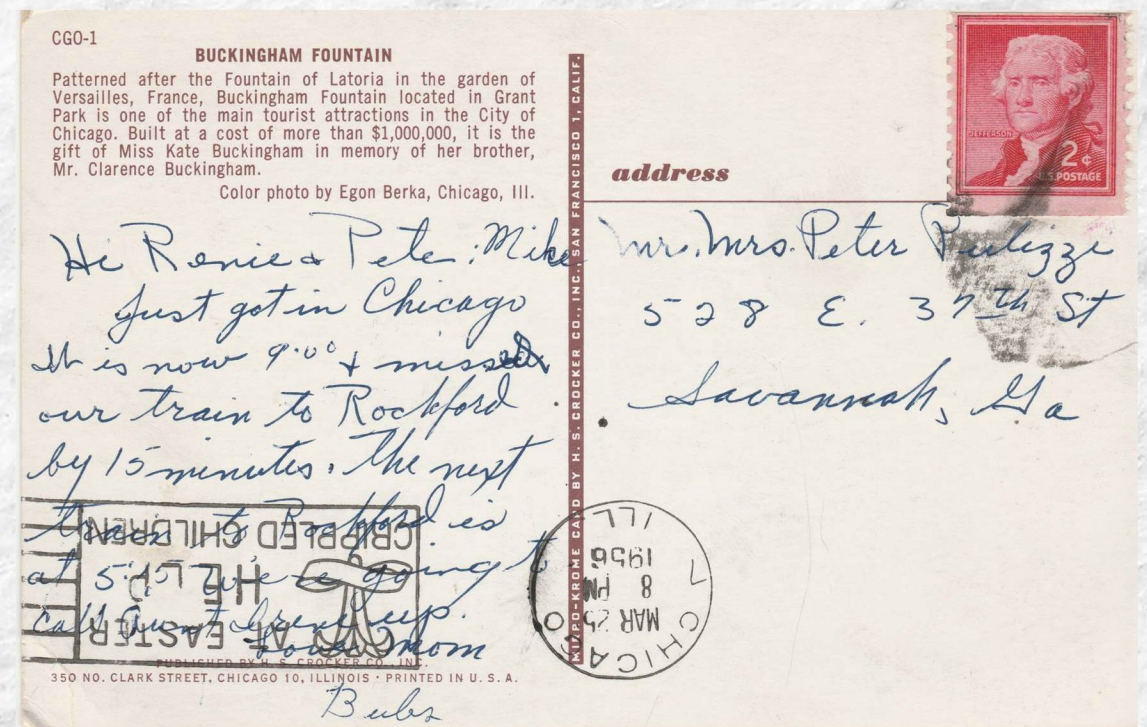 CGO-1
BUCKINGHAM FOUNTAIN
Patterned after the Fountain of Latoria in the garden of
Versailles, France, Buckingham Fountain located in Grant
Park is one of the main tourist attractions in the City of
Chicago. Built at a cost of more than $1,000,000, it is the
gift of Miss Kate Buckingham in memory of her brother,
Mr. Clarence Buckingham.
Color photo by Egon Berka, Chicago, Ill.
Hi Renie & Pete, Mike
Just got in Chicago
It is now 9:00 & missed
our train to Rockford
by 15 minutes. The next
train to Rockford is
at 5:15 We're going to
call Aunt Irene up.
Love Mom
Bubs
PUBLISHED BY H. S. CROCKER CO., INC.
350 NO. CLARK STREET, CHICAGO 10, ILLINOIS · PRINTED IN U. S. A.
MIRRO-KROME CARD BY H. S. CROCKER CO., INC., SAN FRANCISCO 1, CALIF.
address
JEFFERSON
2¢
U.S. POSTAGE
Mr. Mrs. Peter Pulizzi
528 E. 37th St
Savannah, Ga
CHICAGO 7
MAR 25
8 PM
1956
ILL
HELP
CRIPPLED CHILDREN
AT EASTER